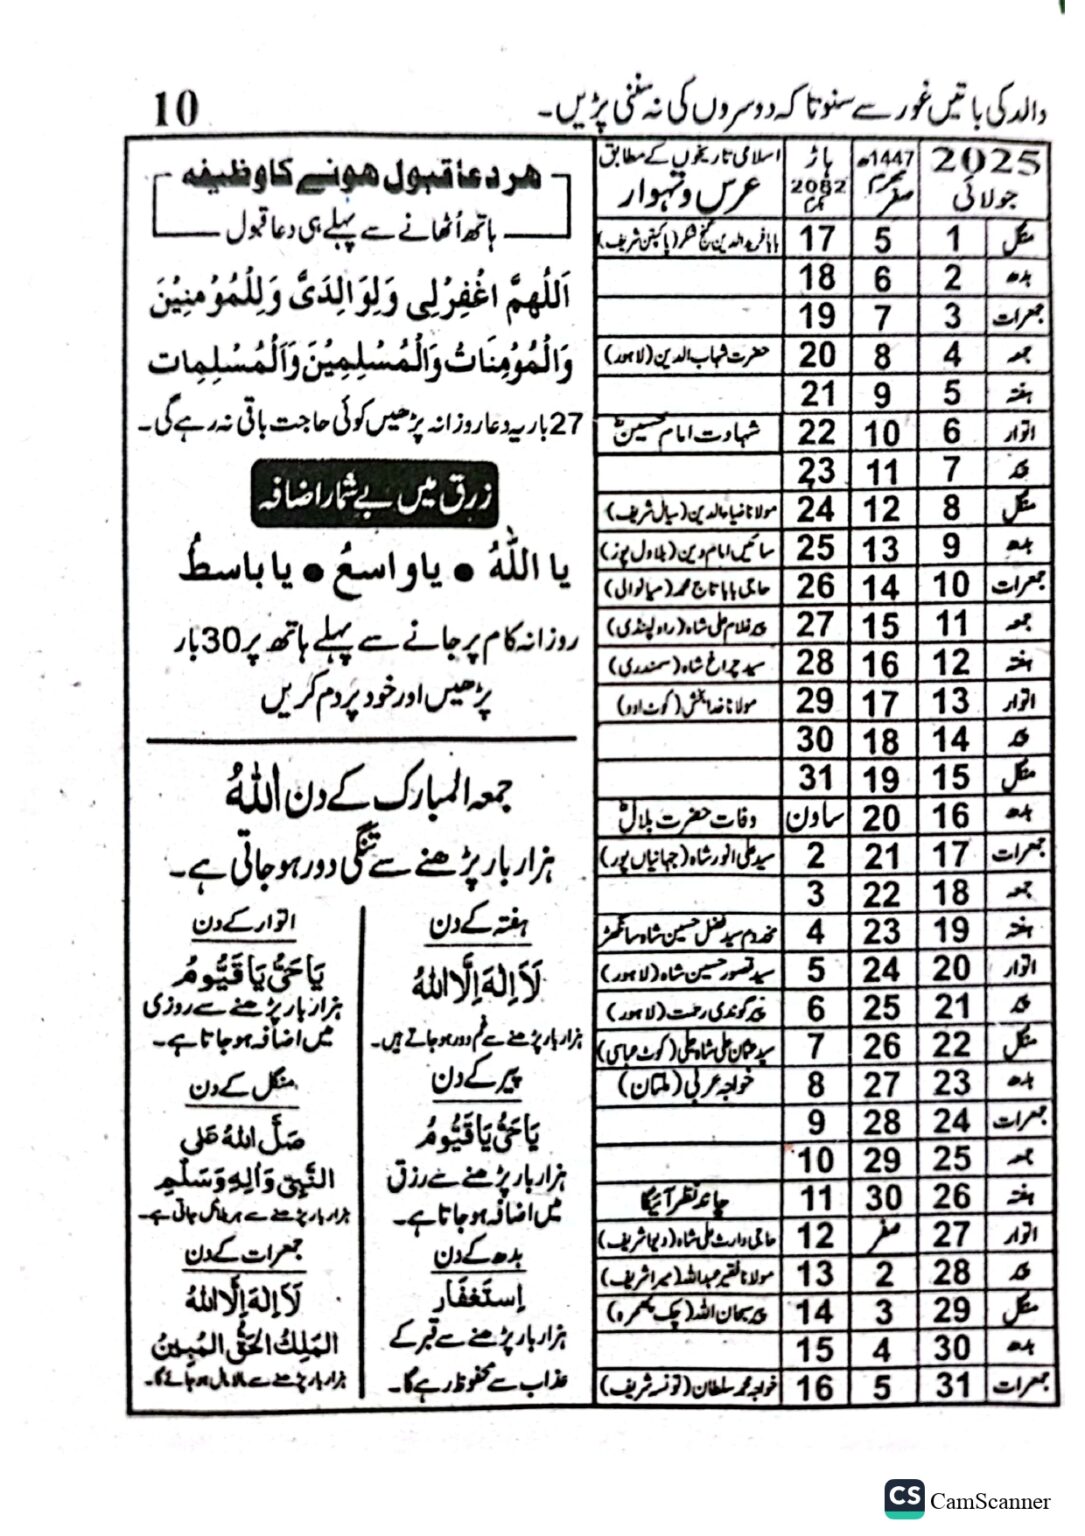 والد کی باتیں غور سے سنو تاکہ دوسروں کی نہ سننی پڑیں۔
10
2025 جولائی
1447ھ محرم صفر
ہاڑ 2082 بکرمی
اسلامی تاریخوں کے مطابق عرس و تہوار
منگل 1 5 17 بابا فرید الدین گنج شکر (پاکپتن شریف)
بدھ 2 6 18
جمعرات 3 7 19
جمعہ 4 8 20 حضرت شہاب الدین (لاہور)
ہفتہ 5 9 21
اتوار 6 10 22 شہادت امام حسینؓ
پیر 7 11 23
منگل 8 12 24 مولانا ضیاءالدین (سیال شریف)
بدھ 9 13 25 سائیں امام دین (بلاول پور)
جمعرات 10 14 26 حاجی بابا تاج محمد (میانوالی)
جمعہ 11 15 27 پیر غلام علی شاہ (راولپنڈی)
ہفتہ 12 16 28 سید چراغ شاہ (سمندری)
اتوار 13 17 29 مولانا خدا بخش (کوٹ ادو)
پیر 14 18 30
منگل 15 19 31
بدھ 16 20 ساون وفات حضرت بلالؓ
جمعرات 17 21 2 سید علی انور شاہ (جہانیاں پور)
جمعہ 18 22 3
ہفتہ 19 23 4 مخدوم سید فضل حسین شاہ سانگھڑ
اتوار 20 24 5 سید تصور حسین شاہ (لاہور)
پیر 21 25 6 پیر گوندی رحمت (لاہور)
منگل 22 26 7 سید عثمان علی شاہ علی (کوٹ عباسی)
بدھ 23 27 8 خواجہ عربی (ملتان)
جمعرات 24 28 9
جمعہ 25 29 10
ہفتہ 26 30 11 چاند نظر آئیگا
اتوار 27 صفر 12 حاجی وارث علی شاہ (دیوا شریف)
پیر 28 2 13 مولانا فقیر عبداللہ (میرا شریف)
منگل 29 3 14 پیر سبحان اللہ (چک)
بدھ 30 4 15
جمعرات 31 5 16 خواجہ محمد سلطان (تونسہ شریف)
ہر دعا قبول ہونے کا وظیفہ
ہاتھ اُٹھانے سے پہلے ہی دعا قبول
اَللّٰھمَّ اغْفِرْلِی وَلِوَالِدَیَّ وَلِلْمُؤْمِنِیْنَ
وَالْمُؤْمِنَاتُ وَالْمُسْلِمِیْنَ وَالْمُسْلِمَات
27 بار یہ دعا روزانہ پڑھیں کوئی حاجت باقی نہ رہے گی۔
زرق میں بے شمار اضافہ
یا اللّٰہُ ● یا واسعُ ● یا باسطُ
روزانہ کام پر جانے سے پہلے ہاتھ پر 30 بار
پڑھیں اور خود پر دم کریں
جمعہ المبارک کے دن اَللّٰہُ
ہزار بار پڑھنے سے تنگی دور ہو جاتی ہے۔
ہفتہ کے دن
لَا اِلٰہَ اِلَّا اللّٰہُ
ہزار بار پڑھنے سے غم دور ہو جاتے ہیں۔
اتوار کے دن
یَا حَیُّ یَا قَیُّومُ
ہزار بار پڑھنے سے روزی
میں اضافہ ہو جاتا ہے۔
پیر کے دن
یَا حَیُّ یَا قَیُّومُ
ہزار بار پڑھنے سے رزق
میں اضافہ ہو جاتا ہے۔
منگل کے دن
صَلَّ اللّٰہُ عَلٰی
النَّبِیِّ وَاٰلِہٖ وَسَلَّم
ہزار بار پڑھنے سے ہر بلا ٹل جاتی ہے۔
بدھ کے دن
اِستَغفَار
ہزار بار پڑھنے سے قبر کے
عذاب سے محفوظ رہے گا۔
جمعرات کے دن
لَا اِلٰہَ اِلَّا اللّٰہُ
المَلِکُ الحَقُّ المُبِین
ہزار بار پڑھنے سے مالا مال ہو جائے گا۔
CS CamScanner